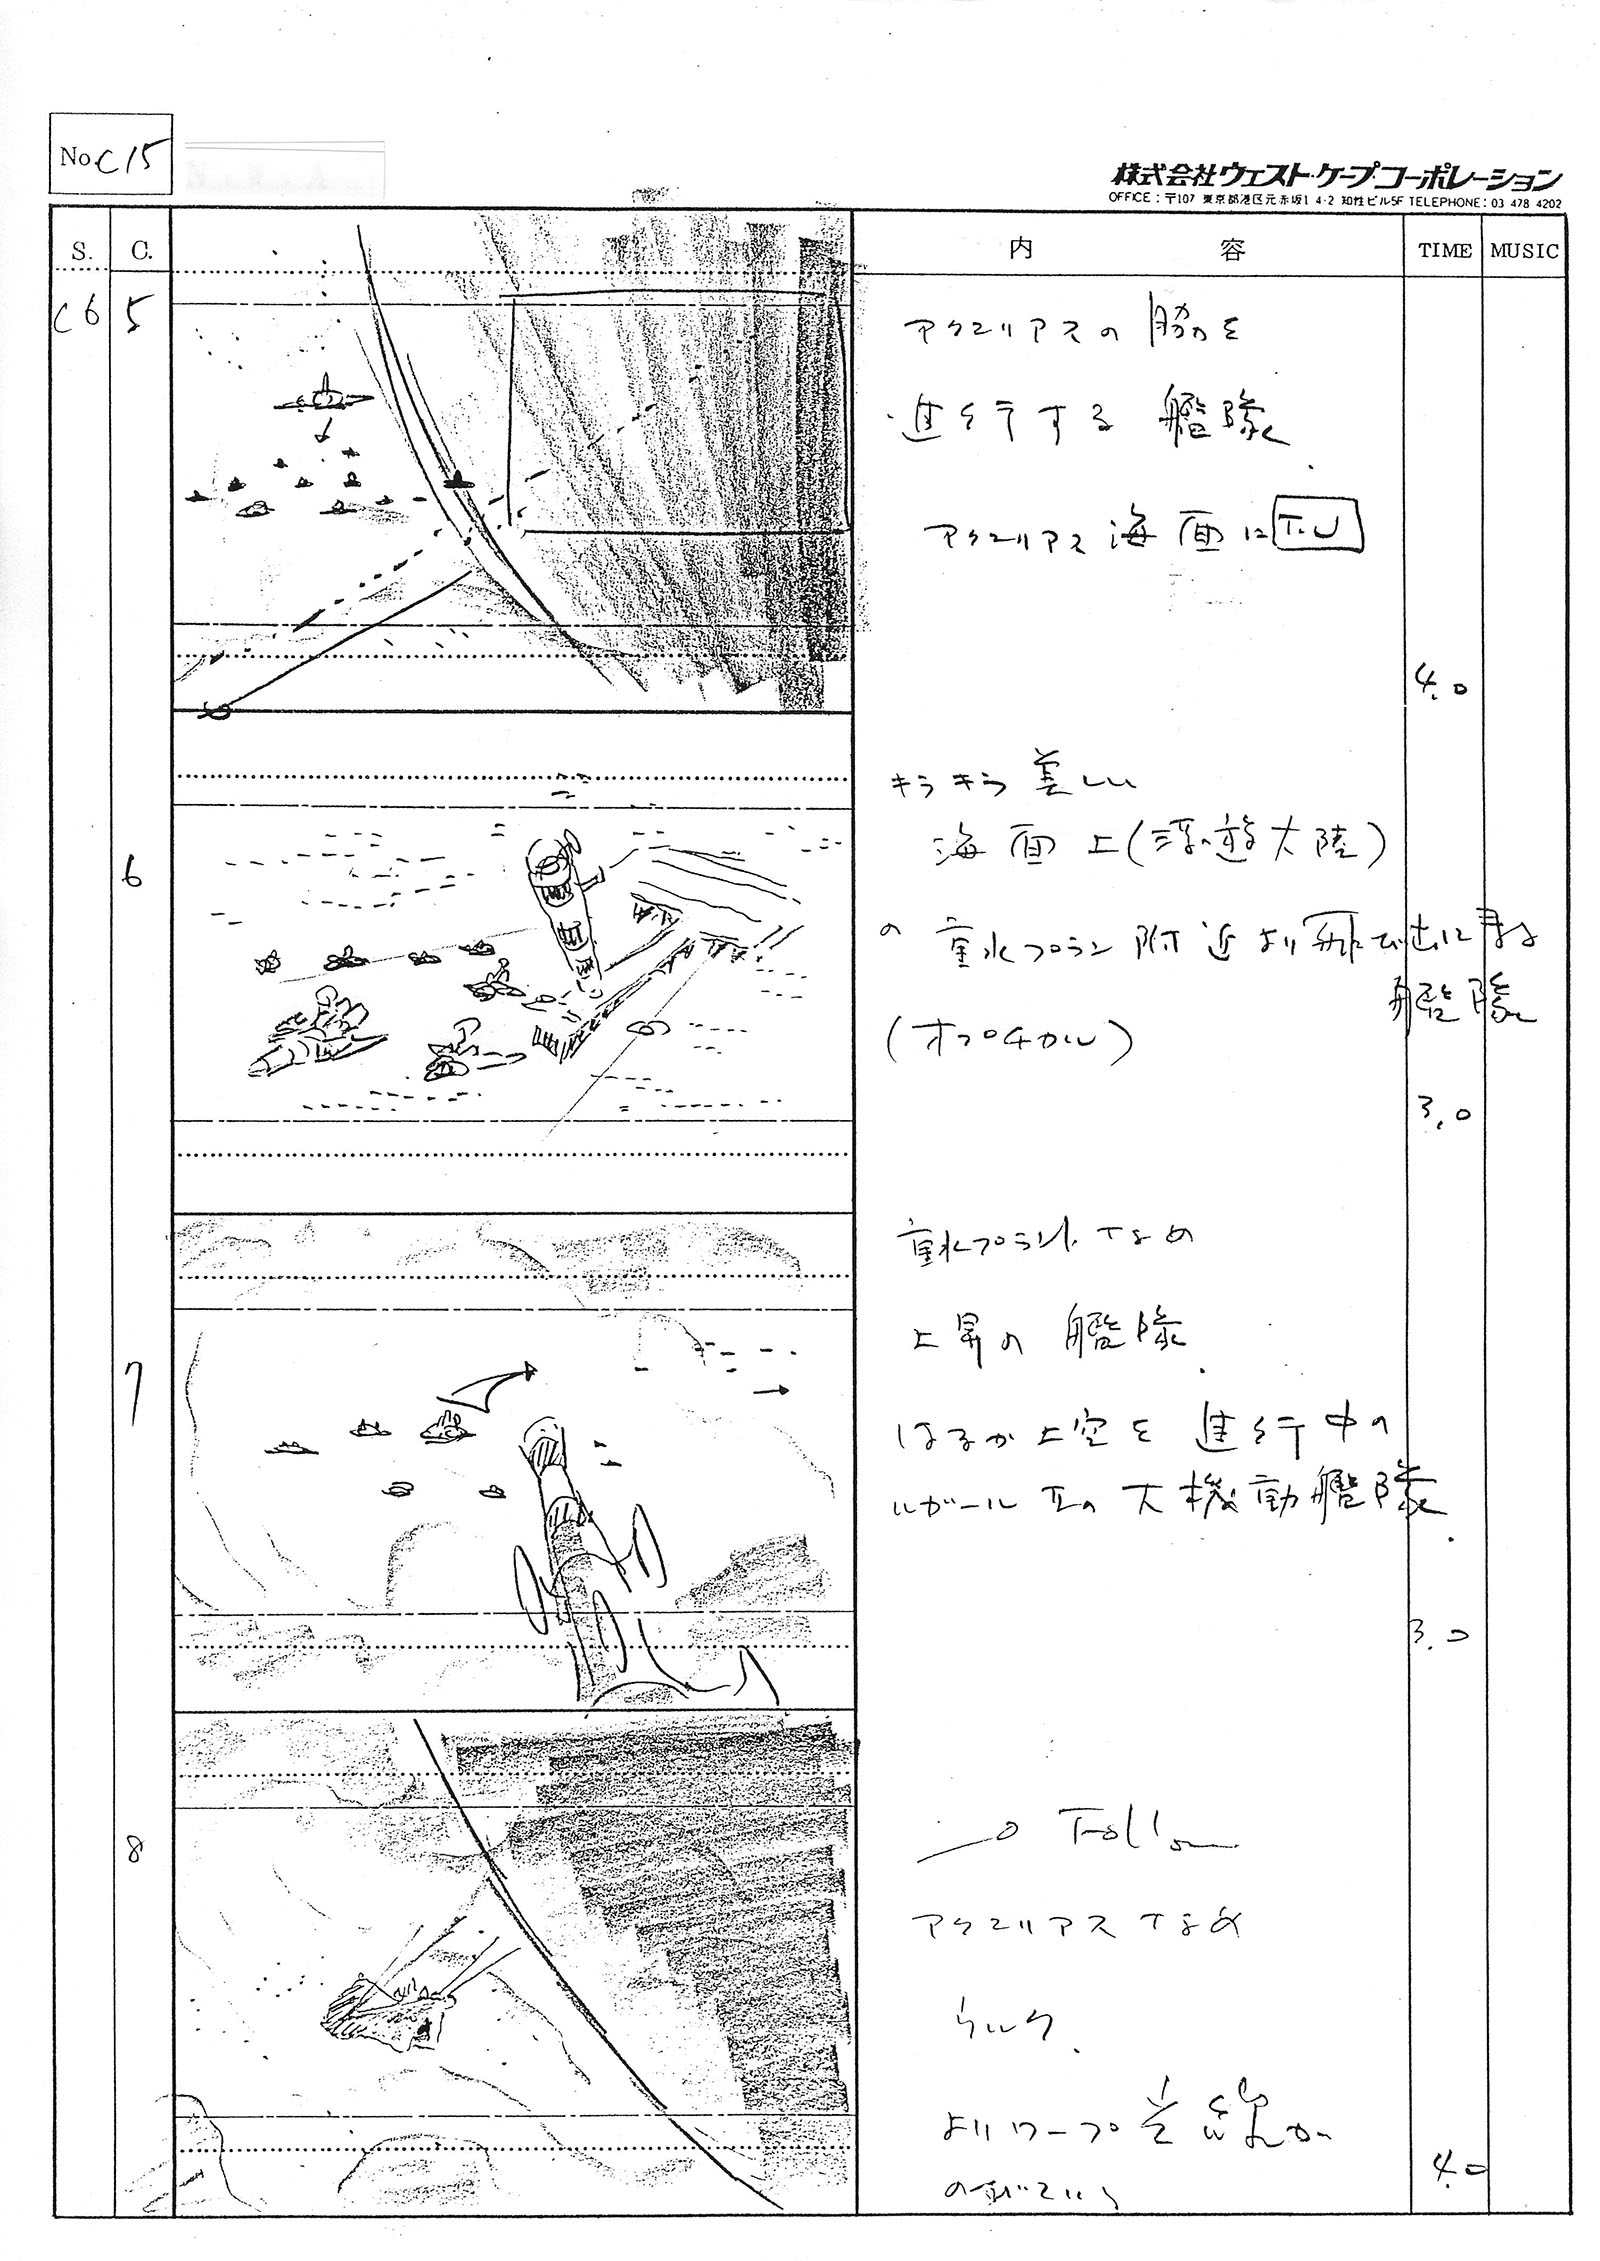 No. C15
株式会社ウェスト・ケープ・コーポレーション
OFFICE：〒107 東京都港区元赤坂1-4-2 知性ビル5F TELEPHONE：03 478 4202
S. C. 内容 TIME MUSIC
C6 5
アクエリアスの脇を
進行する艦隊
アクエリアス海面にT.U
4.0
6
キラキラ美しい
海面上(浮遊大陸)
の重水プラント附近より飛び出に
艦隊
(オプチカル)
3.0
7
重水プラントナメ
上昇の艦隊
はるか上空を進行中の
ルガールIIの大機動艦隊
3.0
8
Follow
アクエリアスナメ
ウルク
よりワープ光線が
のびている
4.0